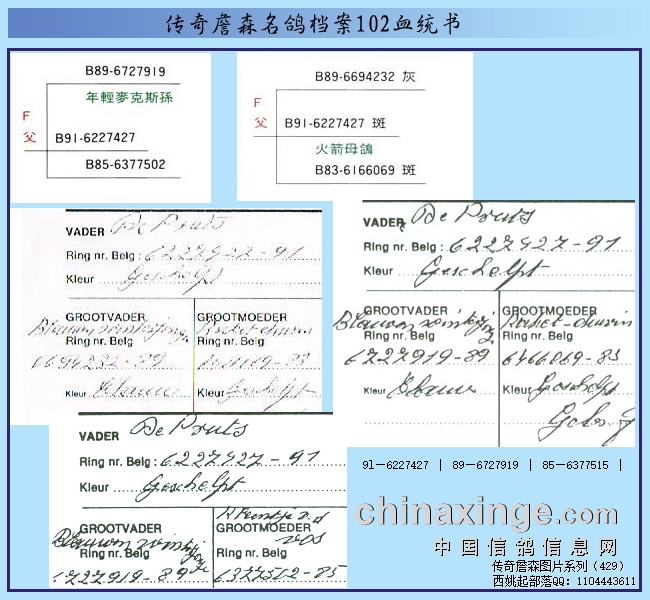 传奇詹森名鸽档案102血统书
B89-6727919
年輕麥克斯孫
F
父
B91-6227427
B85-6377502
B89-6694232 灰
F
父
B91-6227427 斑
火箭母鴿
B83-6166069 斑
VADER De Pruts
Ring nr. Belg: 6227427-91
Kleur Geschelpt
GROOTVADER
GROOTMOEDER
Ring nr. Belg
Ring nr. Belg
6694232-89
Kleur Blauw
Kleur Geschelpt
VADER De Pruts
Ring nr. Belg: 6227427-91
Kleur Geschelpt
GROOTVADER
GROOTMOEDER
Ring nr. Belg
Ring nr. Belg
6727919-89
6166069-83
Kleur Blauw
Kleur Geschelpt
VADER De Pruts
Ring nr. Belg: 6227427-91
Kleur Geschelpt
GROOTVADER
GROOTMOEDER
Ring nr. Belg
Ring nr. Belg
6727919-89
6377502-85
91-6227427 | 89-6727919 | 85-6377515 |
chinaxinge.com
中国信鸽信息网
传奇詹森图片系列(429)
西姚起部落QQ: 1104443611